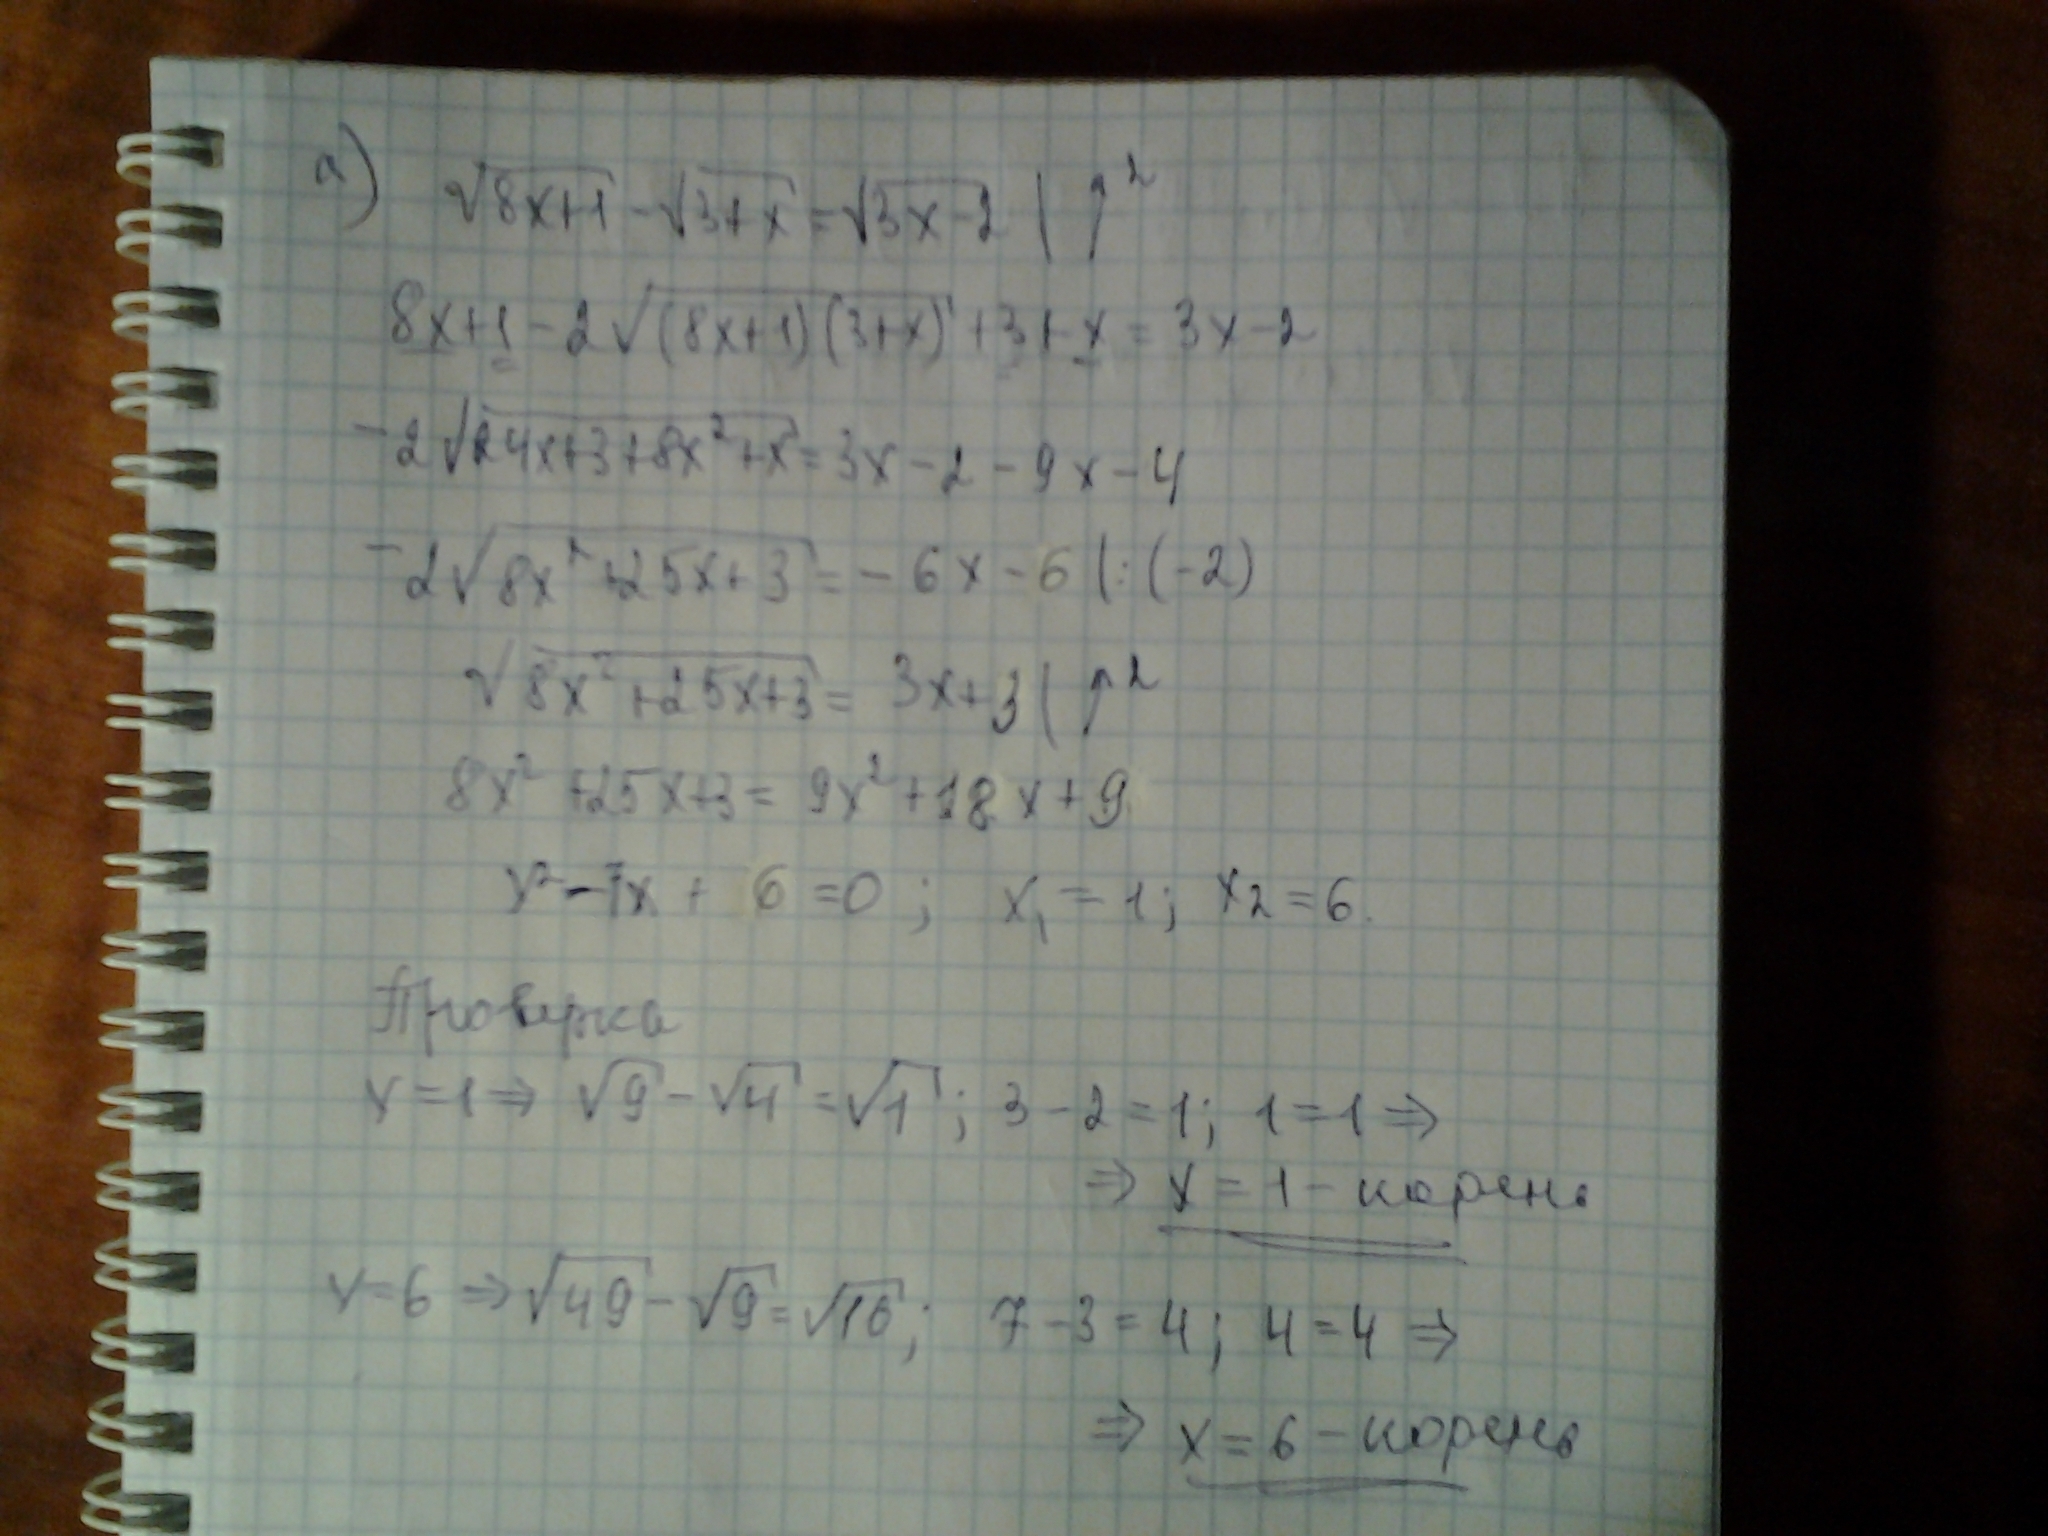 а) √8x+1 - √3+x = √3x-2 | ↑²
8x+1 - 2√(8x+1)(3+x) + 3+x = 3x-2
-2√24x+3+8x²+x = 3x-2-9x-4
-2√8x²+25x+3 = -6x-6 |:(-2)
√8x²+25x+3 = 3x+3 | ↑²
8x²+25x+3 = 9x²+18x+9
x²-7x+6=0; x₁=1; x₂=6.
Проверка
x=1 ⇒ √9 - √4 = √1; 3-2=1; 1=1 ⇒
⇒ x=1 - корень
x=6 ⇒ √49 - √9 = √16; 7-3=4; 4=4 ⇒
⇒ x=6 - корень